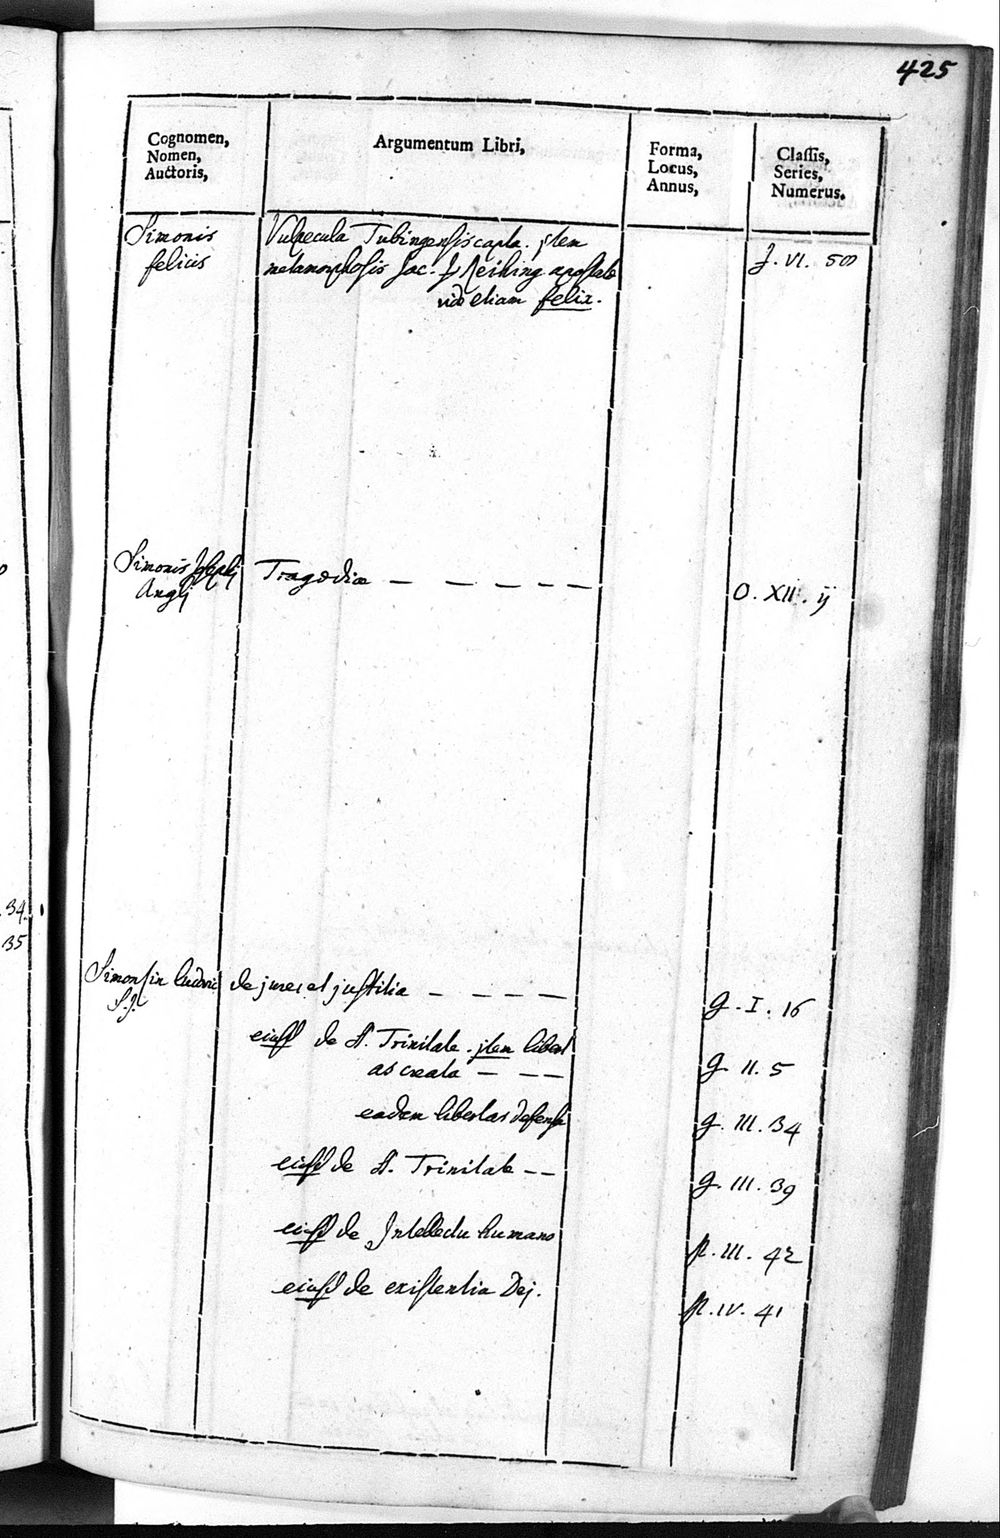 425
Cognomen,
Nomen,
Auctoris,
Argumentum Libri,
Forma,
Locus,
Annus,
Classis,
Series,
Numerus.
Simonis
felicis
Vulpecula Tubingensis capta. jtem
metamorphosis Jac. Reihing apostatae
vide etiam felix.
J. VI. 50
Simonis Josephj
Anglj
Tragoediae — — — — —
O. XII. ij
Simonsin ludovic
S.J.
de jure et justitia — — — —
G. I. 16
eiusd de S. Trinitate. jtem libert
as creata — — —
G. II. 5
eadem libertas defensa
G. III. 34
eiusd de S. Trinitate — —
G. III. 39
eiusd de Intellectu humano
III. 42
eiusd de existentia Dej.
IV. 41
34.
35